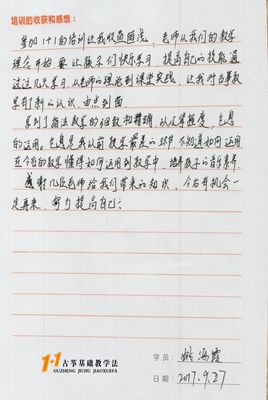 培训的收获和感想：
参加1+1的培训让我收益匪浅，老师从我们的教学
理念开始 要让孩子们快乐学习 提高自己的技能 通
过这几天学习，从老师的理论到课堂实践，让我对古筝教
学有了新的认识，由点到面
学到了指法教学的细致和精确，以及掌握度，气息
的运用，气息是我以前教学最差的环节 不知道如何运用
在今后的教学懂得如何运用到教学中，培养孩子的音乐素养
感谢几位老师给我们带来的知识，今后有机会一
定再来，努力提高自己！
1+1古筝基础教学法
GUZHENG JICHU JIAOXUEFA
学员：姚海霞
日期：2017.9.27